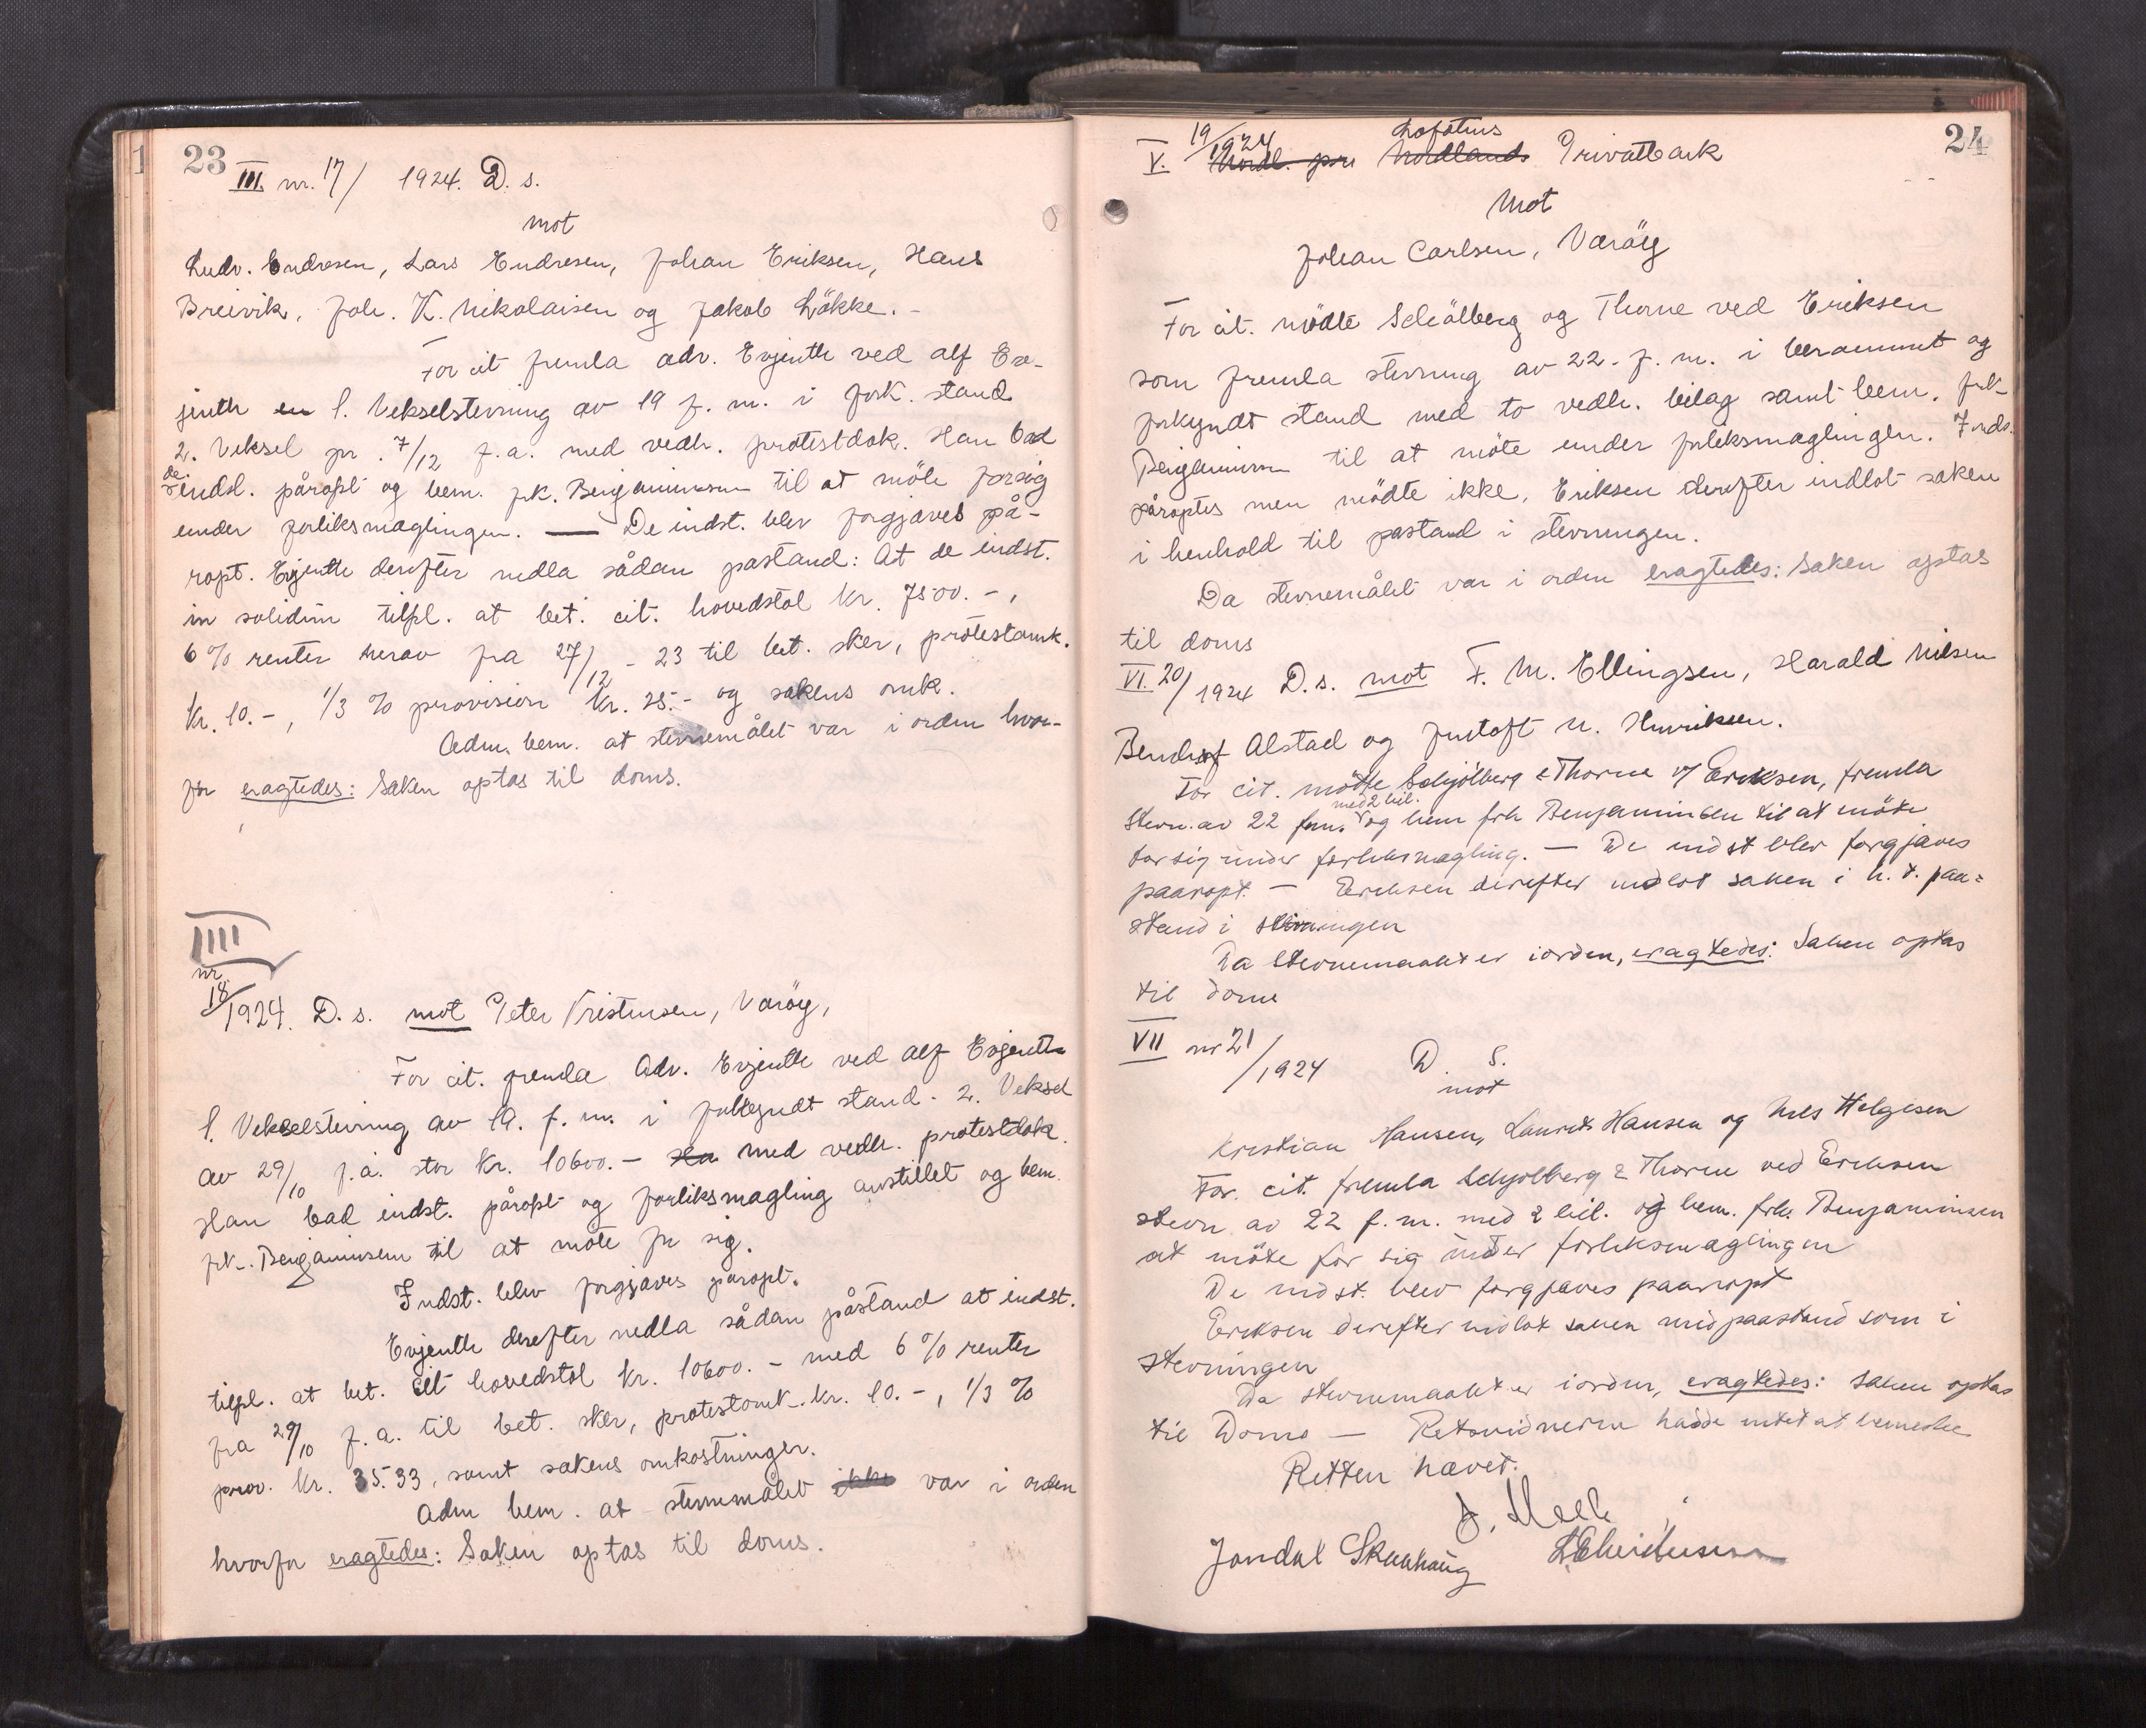 23
III. nr. 17/ 1924. D. s.
mot
Ludv. Endresen, Lars Endresen, Johan Eriksen, Hans
Breivik, Joh. K. Nikolaisen og Jakob Løkke. -
For cit fremla adv. Evjenth ved Alf Ev-
jenth en 1. Vekselstevning av 19 f. m. i fork. stand
2. Veksel pr. 7/12 f. a. med vedh. protestdok. Han bad
de indst. påropt og bem. frk. Benjaminsen til at møte for sig
under forliksmæglingen. — De indst. blev forgjæves på-
ropt. Evjenth derefter nedla sådan påstand: At de indst.
in solidum tilpl. at bet. cit. hovedstol kr. 7500.-,
6 % renter herav fra 27/12 - 23 til bet. sker, protestomk.
kr. 10.-, 1/3 % provision kr. 25.- og sakens omk.
Adm. bem. at stevnemålet var i orden hvor-
for eragtedes: Saken optas til doms.
IIII
nr
18/1924. D. s. mot Peter Kristensen, Værøy,
For cit. fremla Adv. Evjenth ved Alf Evjenth
1. Vekselstevning av 19. f. m. i forkyndt stand. 2. Veksel
av 29/10 f. å. stor kr. 10600.- Ha med vedh. protestdok.
Han bad indst. påropt og forliksmægling anstillet og bem.
frk. Benjaminsen til at møte for sig.
Indst. blev forgjæves påropt.
Evjenth derefter nedla sådan påstand at indst.
tilpl. at bet. cit hovedstol kr. 10600.- med 6 % renter
fra 29/10 f. a. til bet. sker, protestomk. kr. 10.-, 1/3 %
prov. kr. 35.33, samt sakens omkostninger.
Adm bem. at stevnemålet ikke var i orden
hvorfor eragtedes: Saken optas til doms.
24
V. 19/1924 Lofotens
Nordl. priv Nordlands Privatbank
Mot
Johan Carlsen, Værøy
For cit. mødte Schjølberg og Thorne ved Eriksen
som fremla stevning av 22. f. m. i berammet og
forkyndt stand med to vedh. bilag samt bem. frk.
Benjaminsen til at møte under forliksmæglingen. Inds.
påroptes men mødte ikke. Eriksen derefter indlot saken
i henhold til påstand i stevningen.
Da stevnemålet var i orden eragtedes: Saken optas
til doms
VI. 20/1924 D. s. mot F. M. Ellingsen, Harald Nilsen
Alstad og Justoft N. Henriksen.
For cit. møtte Schjølberg & Thorne v/ Eriksen, fremla
stevn. av 22 f.m. med 2 bil. og bem frk Benjaminsen til at møte
for sig under forliksmægling. — De indst blev forgjæves
paaropt. — Eriksen derefter indlot saken i h. t. paa=
stand i stevningen
Da stevnemaalet er iorden, eragtedes: Saken optas
til doms
VII nr 21/1924 D. S.
mot
Kristian Hansen, Laurits Hansen og Nils Helgesen
For. cit. fremla Schjølberg & Thorne ved Eriksen
stevn av 22 f. m. med 2 bil. og bem. frk. Benjaminsen
at møte for sig under forliksmæglingen
De indst. blev forgjæves paaropt
Eriksen derefter indlot saken med paastand som i
stevningen
Da stevnemaalet er iorden, eragtedes: Saken optas
til Doms — Retsvidnerne hadde intet at bemerke
Retten hævet.
Jondal Skaahaug